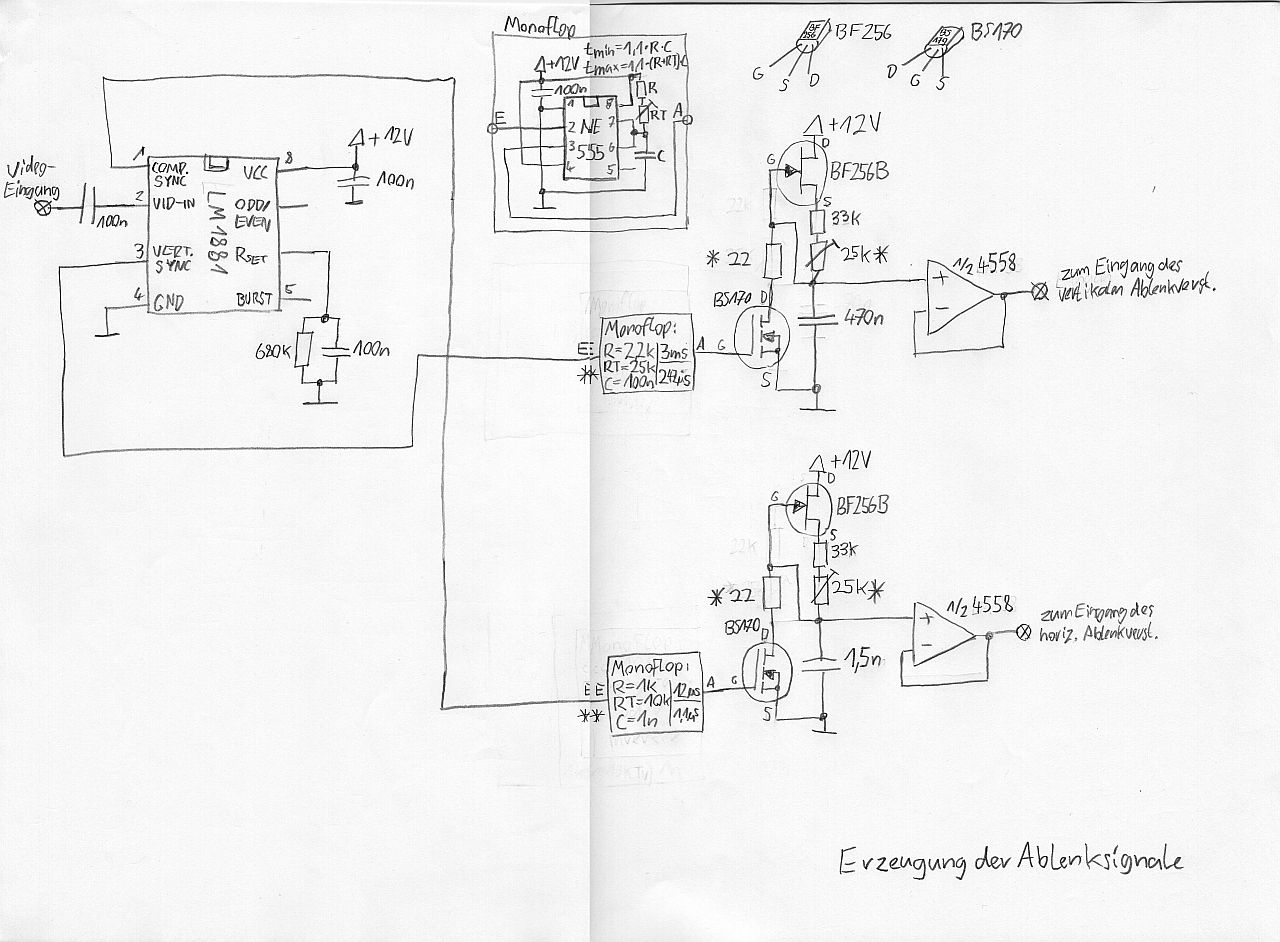 Monoflop
tmin=1,1·R·C
tmax=1,1·(R+RT)·C
+12V
100n
R
RT
E
A
1
8
2
NE
7
3
555
6
4
5
C
BF
256
BF256
G
S
D
BS
170
BS170
D
G
S
Video-
Eingang
100n
1
COMP.
SYNC
VCC
8
+12V
100n
2
VID-IN
ODD/
EVEN
LM1881
3
VERT.
SYNC
RSET
4
GND
BURST
5
680k
100n
+12V
D
G
BF256B
S
33k
* 22
25k*
BS170
D
G
S
470n
+
-
1/2 4558
zum Eingang des
vertikalen Ablenkverst.
E
**
Monoflop:
R=22k
3ms
RT=25k
C=100n
242µs
A
+12V
D
G
BF256B
S
33k
* 22
25k*
BS170
D
G
S
1,5n
+
-
1/2 4558
zum Eingang des
horiz. Ablenkverst.
E E
**
Monoflop:
R=1k
12µs
RT=10k
C=1n
1,1µs
A
Erzeugung der Ablenksignale